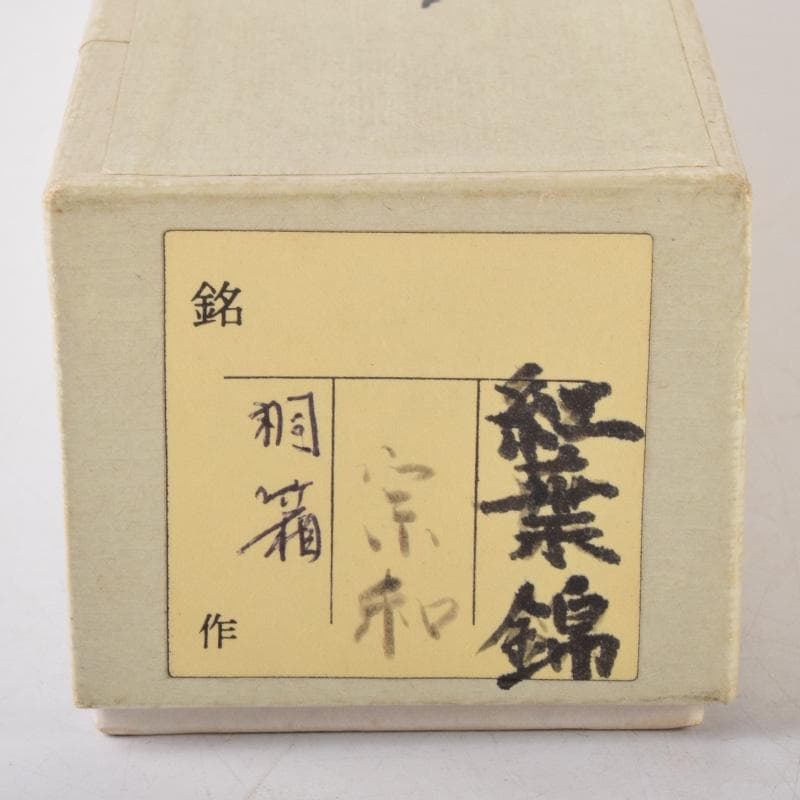 銘
紅葉錦
宗和
桐箱
作